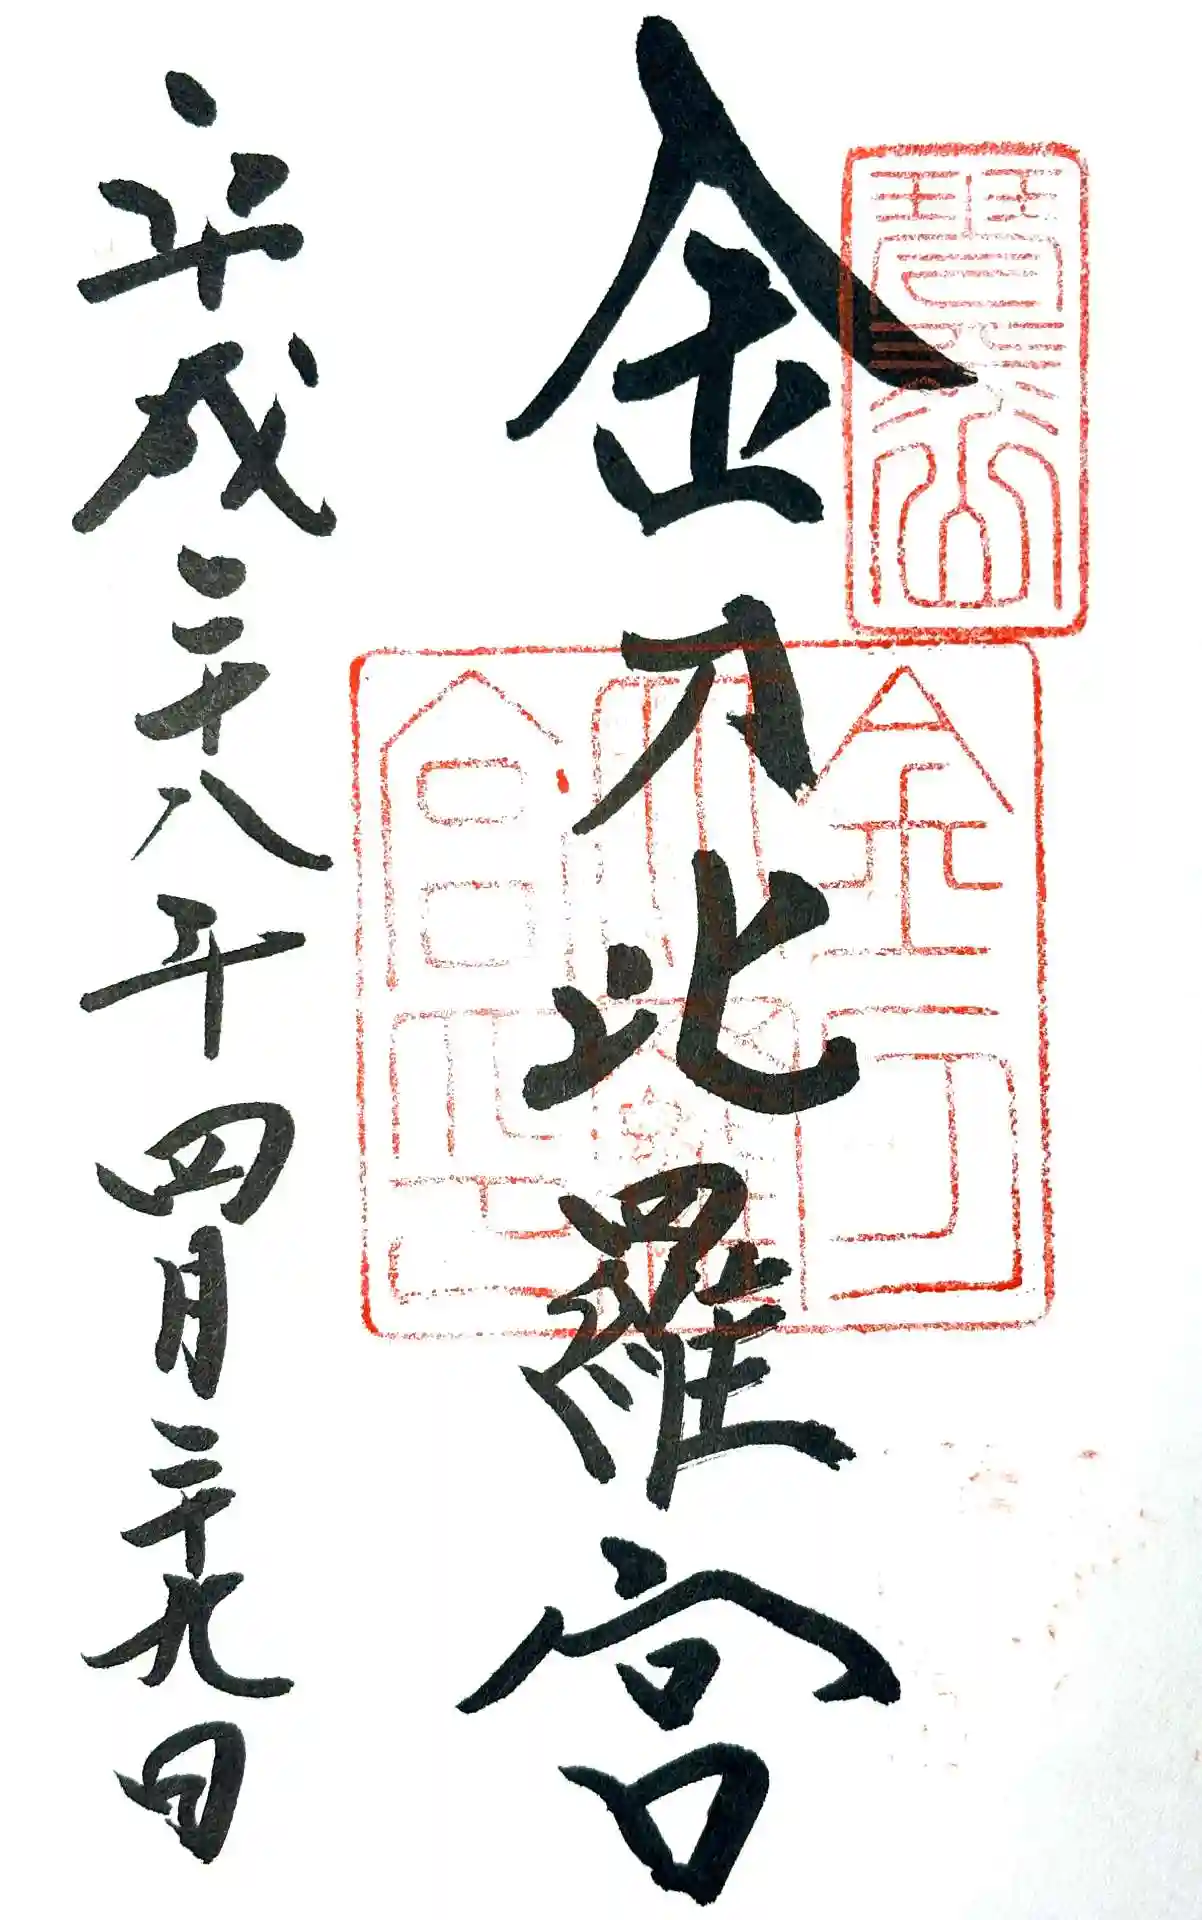 金刀比羅宮
平成二十八年四月二十九日
金刀
比羅
宮印